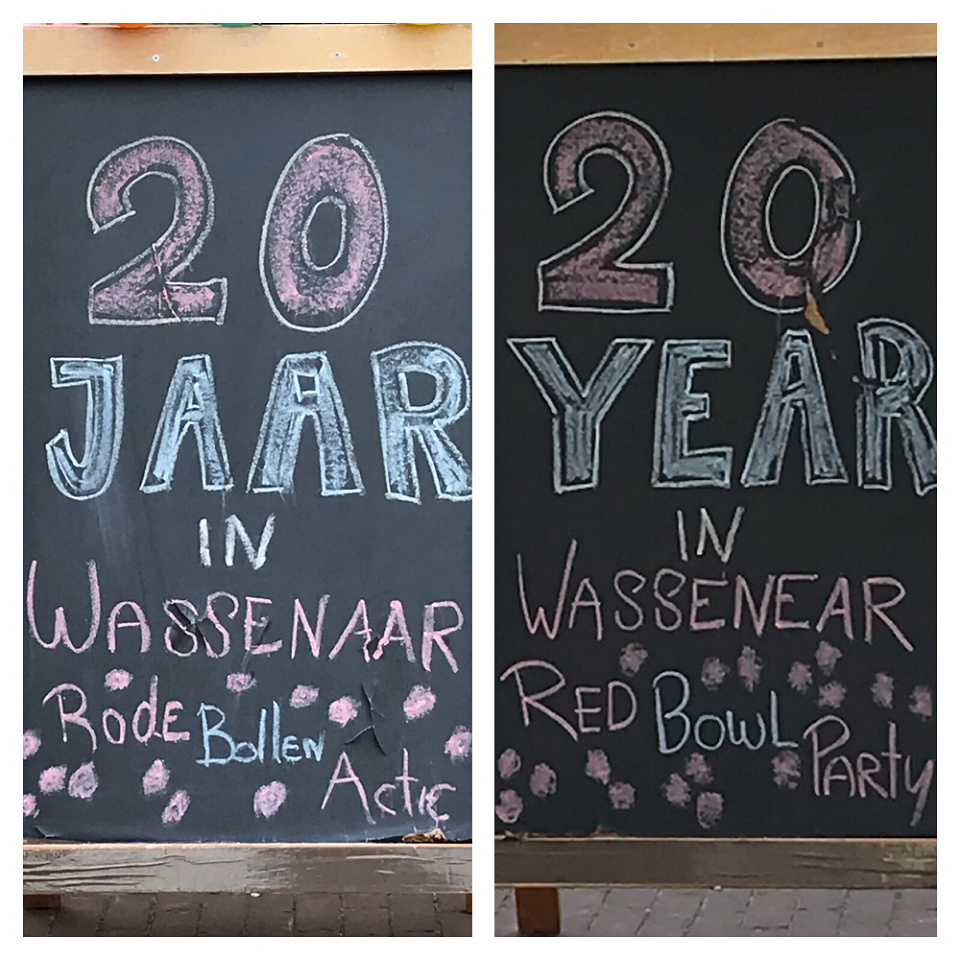 20
JAAR
IN
WASSENAAR
RODE BOLLEN ACTIE
20
YEAR
IN
WASSENEAR
RED BOWL PARTY